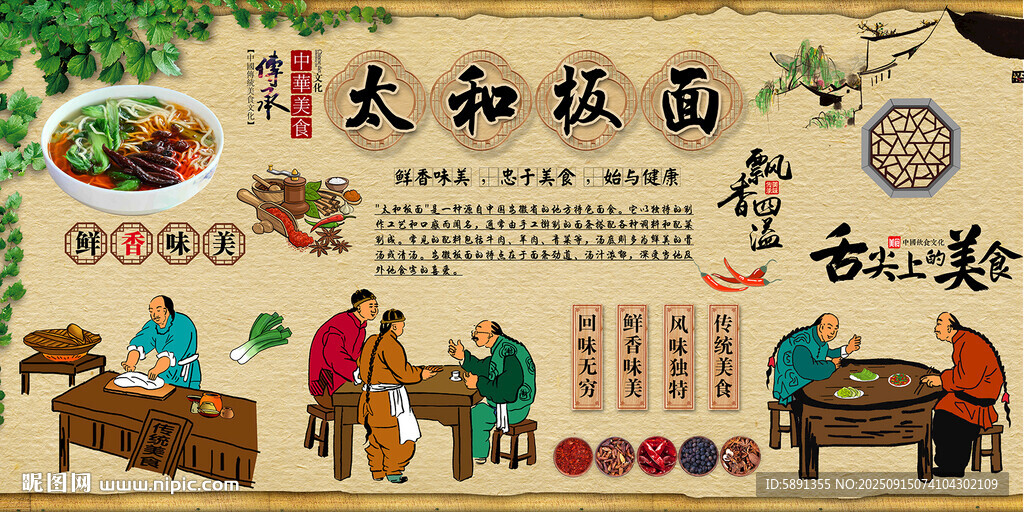 【中國傳統美食文化】
傳承
中華美食
文化
太和板面
鲜香味美，忠于美食，始与健康
"太和板面"是一种源自中国安徽省的地方特色面食。它以独特的制
作工艺和口感而闻名，通常由手工擀制的面条搭配各种调料和配菜
制成。常见的配料包括牛肉、羊肉、青菜等，汤底则多为鲜美的骨
汤或清汤。安徽板面的特点在于面条劲道、汤汁浓郁，深受当地及
外地食客的喜爱。
鲜香味美
飘香四溢
美食
中國飲食文化
舌尖上的美食
回味无穷
鲜香味美
风味独特
传统美食
传统美食
昵图网 www.nipic.com
ID:5891355 NO:20250915074104302109